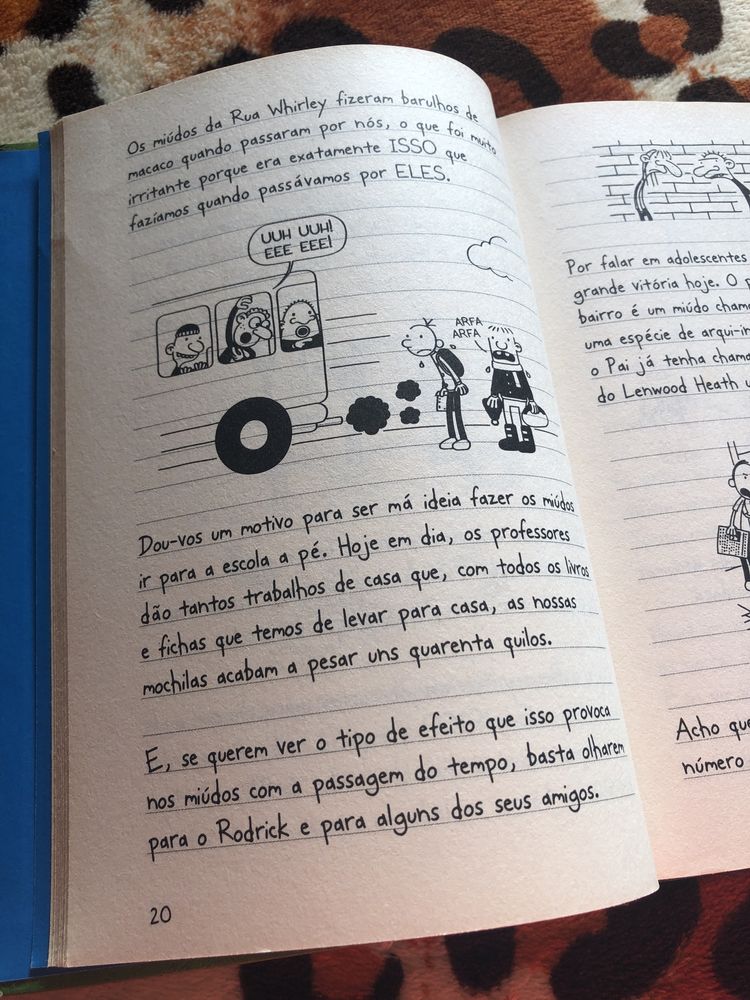 Os miúdos da Rua Whirley fizeram barulhos de
macaco quando passaram por nós, o que foi muito
irritante porque era exatamente ISSO que
fazíamos quando passávamos por ELES.
UUH UUH!
EEE EEE!
ARFA
ARFA
Dou-vos um motivo para ser má ideia fazer os miúdos
ir para a escola a pé. Hoje em dia, os professores
dão tantos trabalhos de casa que, com todos os livros
e fichas que temos de levar para casa, as nossas
mochilas acabam a pesar uns quarenta quilos.
E, se querem ver o tipo de efeito que isso provoca
nos miúdos com a passagem do tempo, basta olharem
para o Rodrick e para alguns dos seus amigos.
20
Por falar em adolescentes
grande vitória hoje. O
bairro é um miúdo
uma espécie de
o Pai já tenha
do Lenwood Heath
Acho
número